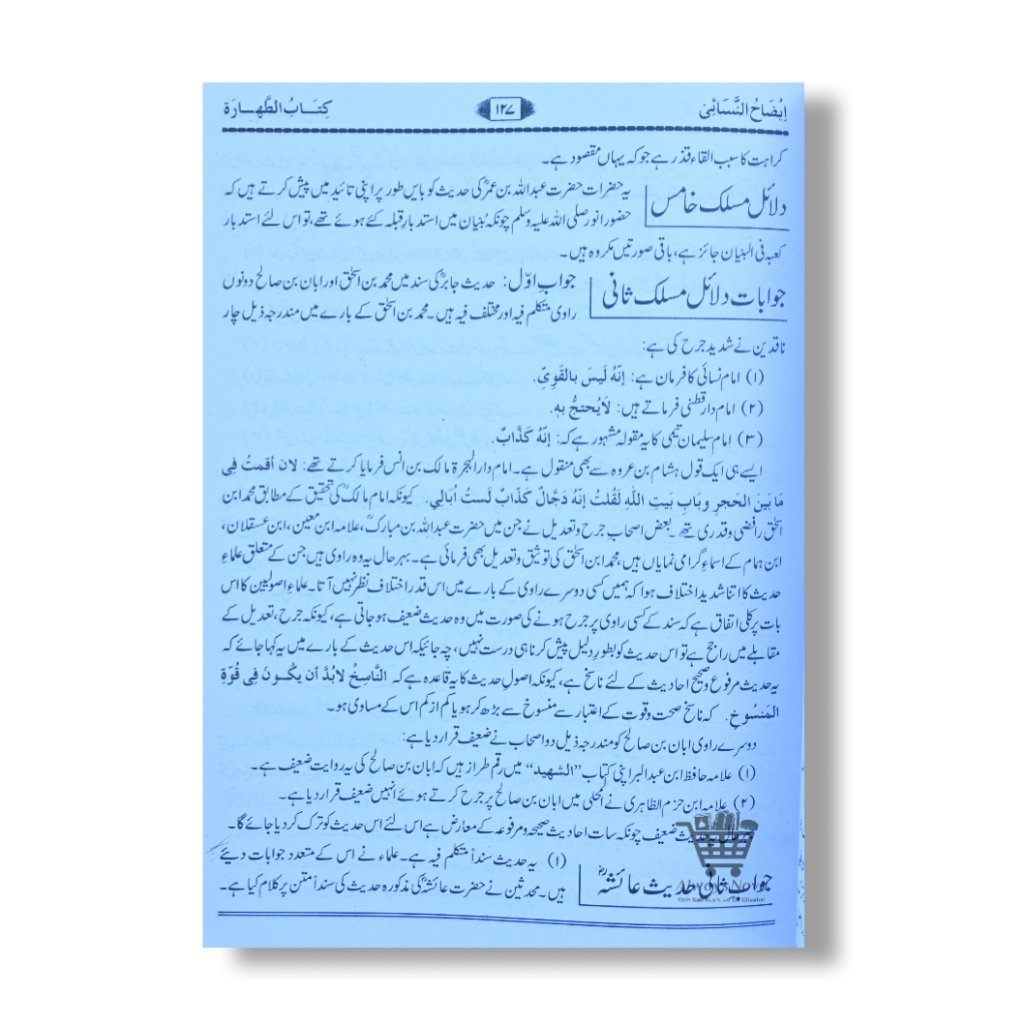 اِيْضَاحُ النَّسَائِیْ ۱۲۷ كِتَـابُ الطَّهَـارَة
کراہت کا سبب القاء قذر ہے جو کہ یہاں مقصود ہے۔
دلائل مسلک خامس یہ حضرات حضرت عبداللہ بن عمرؓ کی حدیث کو بایں طور پر اپنی تائید میں پیش کرتے ہیں کہ
حضور انور صلی اللہ علیہ وسلم چونکہ بُنیان میں استدبارِ قبلہ کئے ہوئے تھے، تو اس لئے استدبار
کعبہ فی البنیان جائز ہے، باقی صورتیں مکروہ ہیں۔
جوابات دلائل مسلک ثانی جواب اوّل: حدیث جابرؓ کی سند میں محمد بن اسحٰق اور ابان بن صالح دونوں
راوی متکلم فیہ اور مختلف فیہ ہیں۔ محمد بن اسحٰق کے بارے میں مندرجہ ذیل چار
ناقدین نے شدید جرح کی ہے:
(۱) امام نسائی کا فرمان ہے: إنّهُ لَيسَ بالقَوِيِّ.
(۲) امام دارقطنی فرماتے ہیں: لَايُحتجُّ بهِ.
(۳) امام سلیمان تیمی کا یہ مقولہ مشہور ہے کہ: إنّهُ كَذّابٌ.
ایسے ہی ایک قول ہشام بن عروہ سے بھی منقول ہے۔ امام دار الہجرۃ مالک بن انس فرمایا کرتے تھے: لان أقمتُ فِی
مَا بينَ الحَجرِ وبابِ بَيتِ اللّٰهِ لَقُلتُ إنّهُ دَجّالٌ كَذّابٌ لَستُ أبَالِي. کیونکہ امام مالکؒ کی تحقیق کے مطابق محمد ابن
اسحٰق رافضی و قدری تھے۔ بعض اصحابِ جرح و تعدیل نے جن میں حضرت عبداللہ بن مبارکؒ، علامہ ابن معین، ابن عسقلان،
ابن ہمام کے اسماءِ گرامی نمایاں ہیں، محمد ابن اسحٰق کی توثیق و تعدیل بھی فرمائی ہے۔ بہرحال یہ وہ راوی ہیں جن کے متعلق علماءِ
حدیث کا اتنا شدید اختلاف ہوا کہ ہمیں کسی دوسرے راوی کے بارے میں اس قدر اختلاف نظر نہیں آتا۔ علماءِ اصولیین کا اس
بات پر کلی اتفاق ہے کہ سند کے کسی راوی پر جرح ہونے کی صورت میں وہ حدیث ضعیف ہو جاتی ہے، کیونکہ جرح، تعدیل کے
مقابلے میں راجح ہے تو اس حدیث کو بطورِ دلیل پیش کرنا ہی درست نہیں، چہ جائیکہ اس حدیث کے بارے میں یہ کہا جائے کہ
یہ حدیث مرفوع و صحیح احادیث کے لئے ناسخ ہے، کیونکہ اصولِ حدیث کا یہ قاعدہ ہے کہ النَّاسِخُ لابُدَّ أن يكُونَ فِی قُوّةِ
المَنسُوخِ. کہ ناسخ صحت و قوت کے اعتبار سے منسوخ سے بڑھ کر ہو یا کم از کم اس کے مساوی ہو۔
دوسرے راوی ابان بن صالح کو مندرجہ ذیل دو اصحاب نے ضعیف قرار دیا ہے:
(۱) علامہ حافظ ابن عبدالبر اپنی کتاب ”الشهيد“ میں رقم طراز ہیں کہ ابان بن صالح کی یہ روایت ضعیف ہے۔
(۲) علامہ ابن حزم الظاہری نے المحلی میں ابان بن صالح پر جرح کرتے ہوئے انہیں ضعیف قرار دیا ہے۔
حدیث ضعیف چونکہ سات احادیث صحیحہ و مرفوعہ کے معارض ہے اس لئے اس حدیث کو ترک کر دیا جائے گا۔
جواب ثانی حدیث عائشہؓ (۱) یہ حدیث سنداً متکلم فیہ ہے۔ علماء نے اس کے متعدد جوابات دیئے
ہیں۔ محدثین نے حضرت عائشہؓ کی مذکورہ حدیث کی سنداً متن پر کلام کیا ہے۔